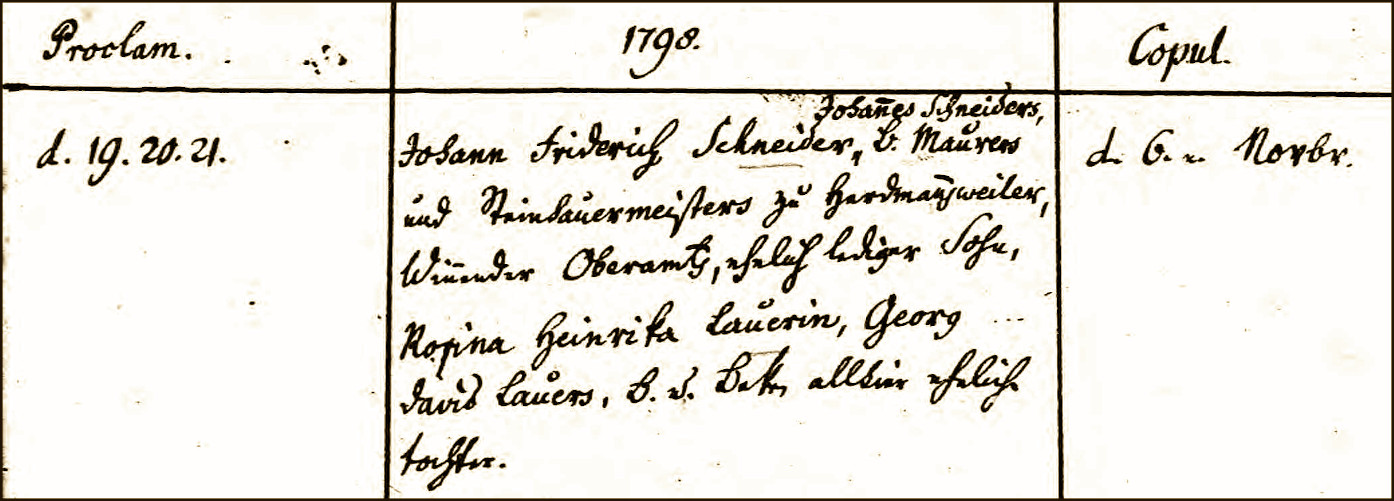 Proclam.
1798.
Copul.
d. 19. 20. 21.
Johannes Schneiders,
Johann Friderich Schneider, b. Maurers
und Steinhauermeisters zu Herdmannsweiler,
Winnender Oberamts, ehelich lediger Sohn,
Rosina Heinrika Lauerin, Georg
David Lauers, b. u. Beken allhier eheliche
tochter.
d. 6. n. Novbr.